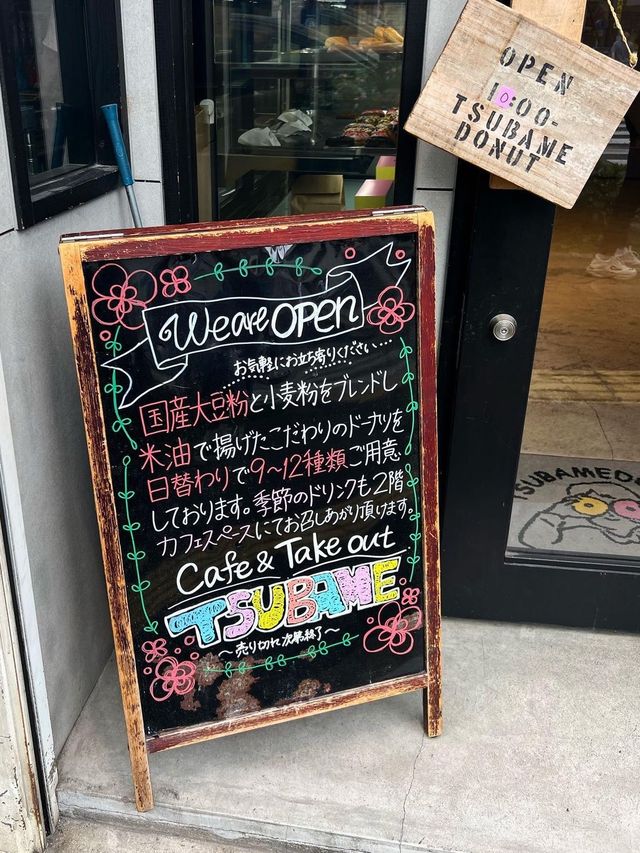 OPEN
10:00-
TSUBAME
DONUT
We are OPEN
お気軽にお立ち寄りください…
国産大豆粉と小麦粉をブレンドし
米油で揚げたこだわりのドーナツを
日替わりで9〜12種類ご用意
しております。季節のドリンクも2階
カフェスペースにてお召しあがり頂けます。
Cafe & Take out
TSUBAME
〜売り切れ次第終了〜
TSUBAMEDO